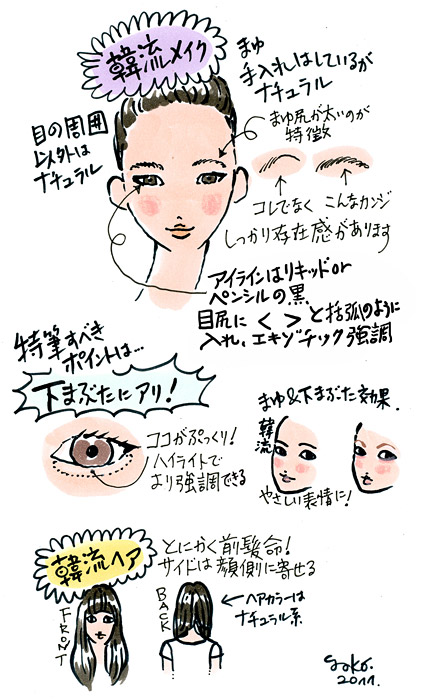 韓流メイク
まゆ
手入れはしているが
ナチュラル
まゆ尻が太いのが
特徴
目の周囲
以外は
ナチュラル
コレでなく こんなカンジ
しっかり存在感があります
アイラインはリキッドor
ペンシルの黒
目尻に < > と括弧のように
入れ、エキゾチック強調
特筆すべき
ポイントは…
下まぶたにアリ!
ココがぷっくり!
ハイライトで
より強調できる
まゆ&下まぶた効果.
韓流
やさしい表情に!
韓流ヘア
とにかく前髪命!
サイドは顔側に寄せる
FRONT
BACK
ヘアカラーは
ナチュラル系
2011.